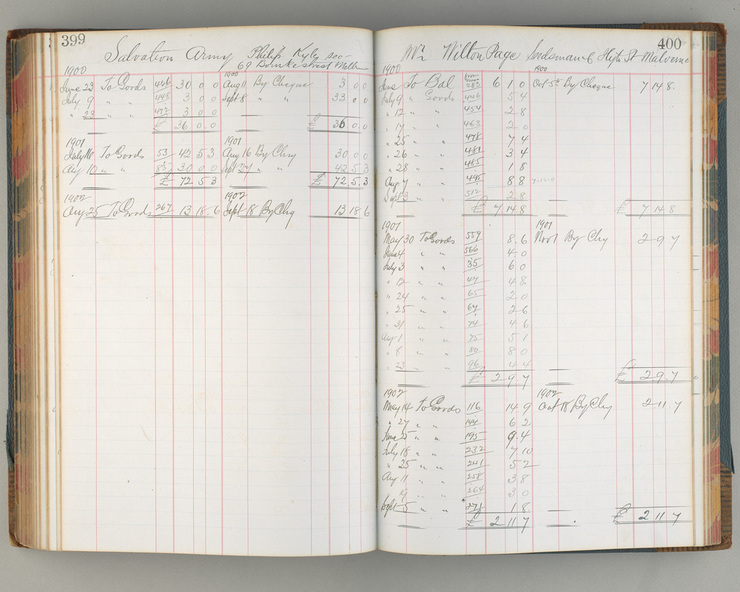 399
Salvation Army Philip Kyle sec
69 Bourke street Melb
1900 1900
June 23 To Goods 30 0 0 Aug 11 By Cheque 3 0 0
July 9 " " 3 0 0 Sept 8 " " 33 0 0
" 23 " " 3 0 0
£ 36 0 0 £ 36 0 0
1901 1901
July 16 To Goods 53 42 5 3 Aug 16 By Chq 30 0 0
Aug " " 30 0 0 Sept " " 42 5 3
£ 72 5 3 £ 72 5 3
1902 1902
Aug 25 To Goods 267 13 18 6 Sept 18 By Chq 13 18 6
400
Mr Wilton Page Seedsman &c High St Malvern
1900 1900
June To Bal 6 1 0 Oct 5th By Cheque 7 14 8
July 9 " Goods 5 4
" 12 " " 454 2 8
" 17 " " 463 2 0
" 25 " " 478 7 4
" 26 " " 481 3 4
" 28 " " 485 1 8
Aug 7 " " 495 8 8
Sept 3 " " 2 8
£ 7 14 8 £ 7 14 8
1901 1901
May 30 To Goods 559 8 6 Nov 1 By Chq 2 9 7
June 4 " " 566 4 0
July 3 " " 35 6 0
" 12 " " 47 4 8
" 24 " " 65 2 0
" 25 " " 67 2 6
" 31 " " 74 4 6
Aug 1 " " 75 5 1
" 8 " " 80 8 0
" 23 " " 96 4 4
£ 2 9 7 £ 2 9 7
1902 1902
May 14 To Goods 116 14 9 Oct 18 By Chq 2 11 7
" 27 " " 144 6 2
June 25 " " 195 9 4
July 18 " " 232 7 10
" 25 " " 241 5 2
Aug 11 " " 258 3 8
" " " 264 3 0
Sept 5 " " 273 1 8
£ 2 11 7 £ 2 11 7